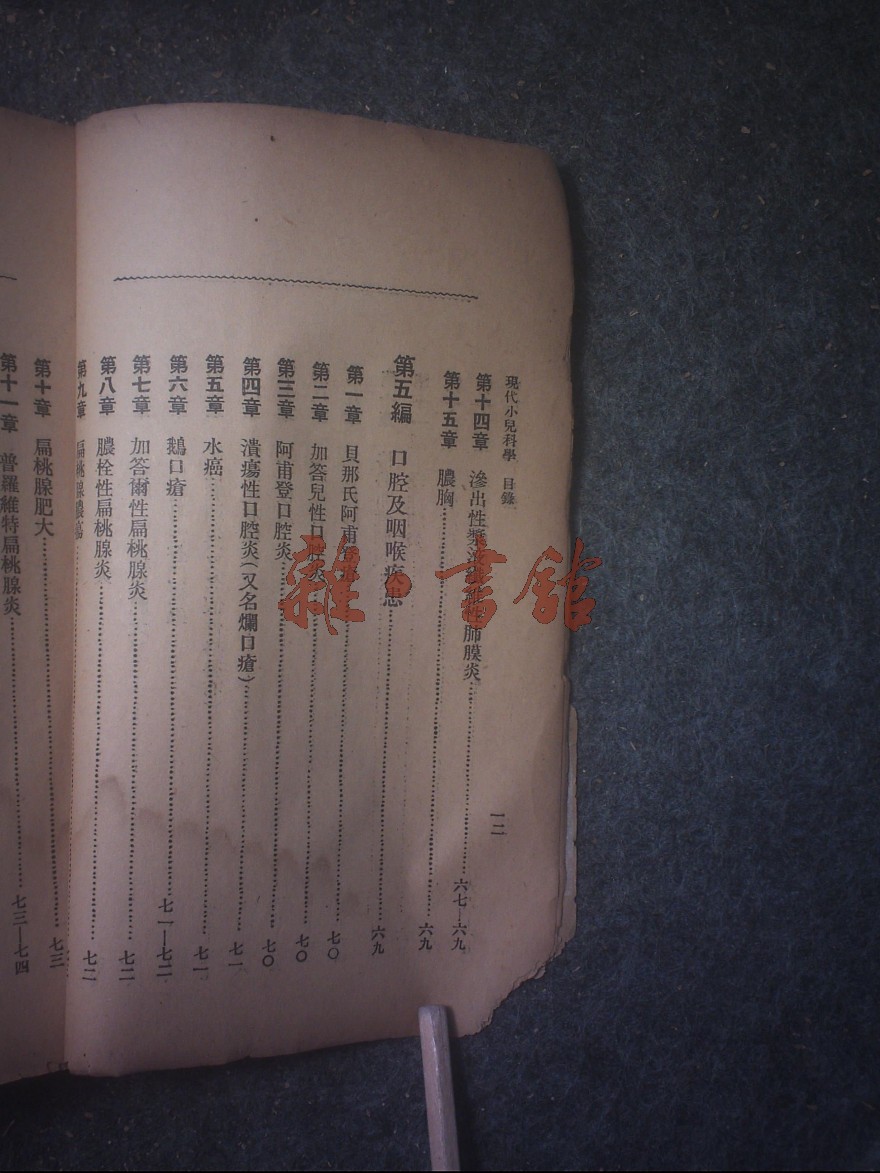 現代小兒科學 目錄
一二
第十四章 滲出性漿液 肺膜炎 六七—六九
第十五章 膿胸 六九
第五編 口腔及咽喉疾患 六九
第一章 貝那氏阿甫 七〇
第二章 加答兒性口腔炎 七〇
第三章 阿甫登口腔炎 七〇
第四章 潰瘍性口腔炎(又名爛口瘡) 七一
第五章 水癌 七一
第六章 鵝口瘡 七一—七二
第七章 加答爾性扁桃腺炎 七二
第八章 膿栓性扁桃腺炎 七二
第九章 扁桃腺膿瘍
第十章 扁桃腺肥大 七三
第十一章 普羅維特扁桃腺炎 七三—七四
雜·書館